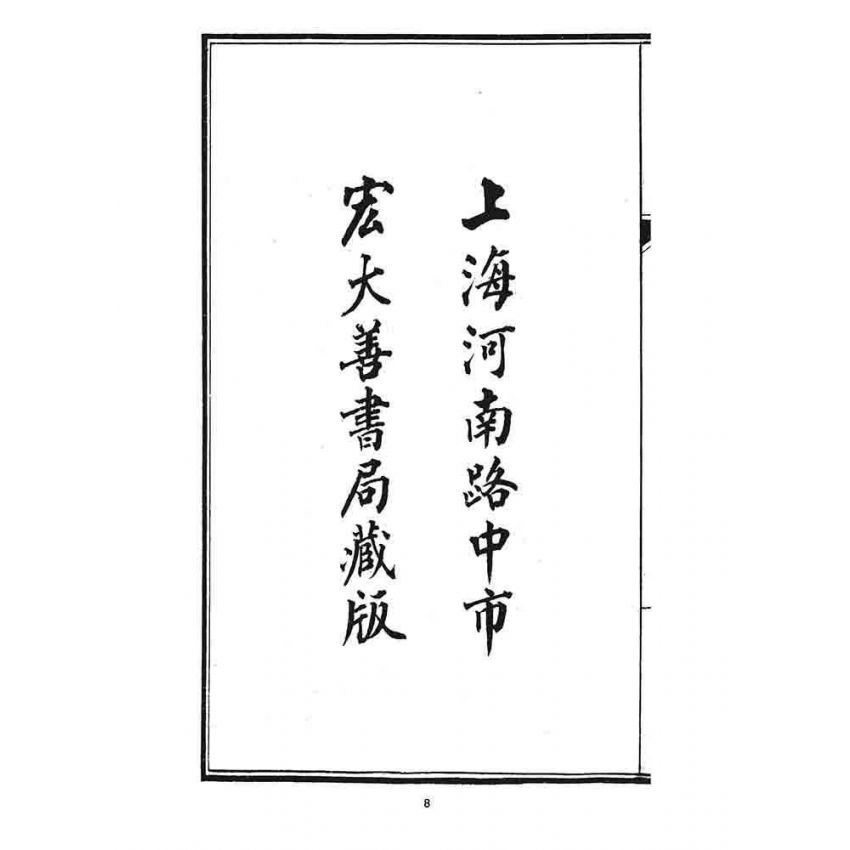 上海河南路中市
宏大善書局藏版
8